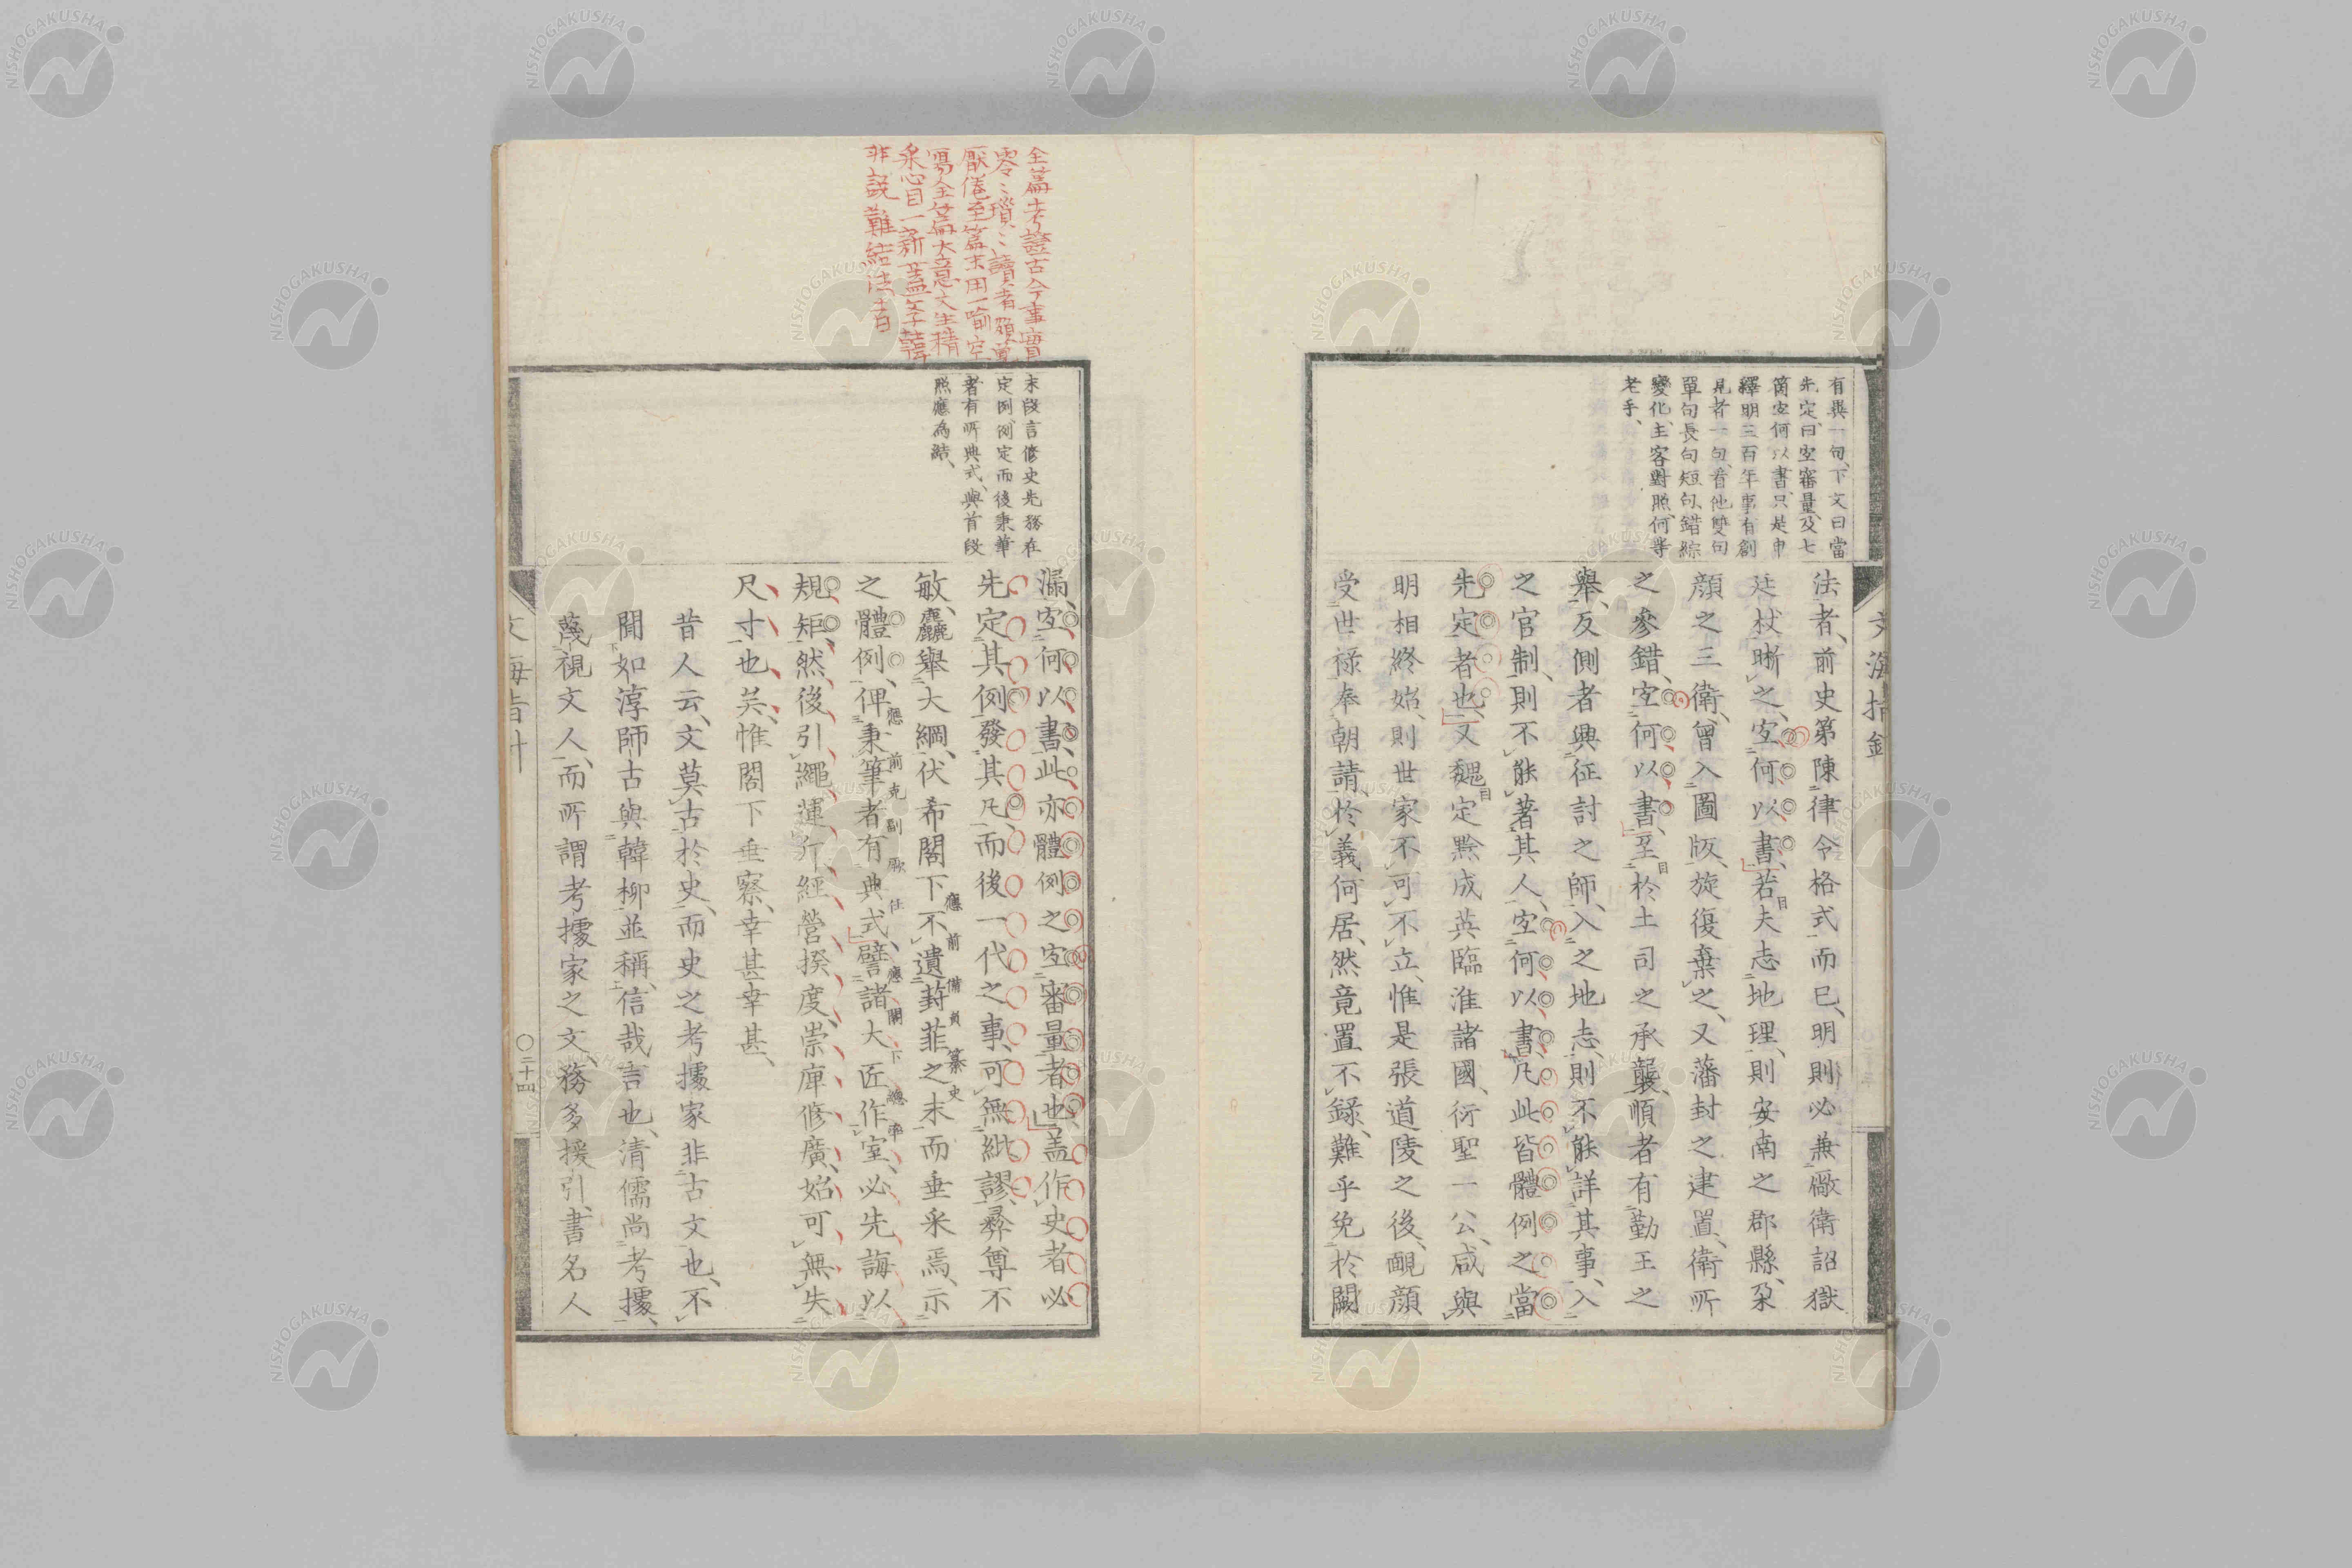 有異一句、下文曰當
先定、曰宐審量、及七
箇宐何以書、只是申
繹明三百年事有創
見者一句、看他雙句
單句長句短句、錯綜
變化、主客對照、何等
老手、
法者、前史第陳律令格式而已、明則必兼厰衛詔獄
廷杖晣之、宐何以書、若夫志地理、則安南之郡縣、朶
顔之三衛、曾入圖版、旋復棄之、又藩封之建置、衛所
之參錯、宐何以書、至於土司之承襲、順者有勤王之
舉、反側者興征討之師、入之地志、則不能詳其事、入
之官制、則不能著其人、宐何以書、凡此皆體例之當
先定者也、又魏定黔成英臨淮諸國、衍聖一公、咸與
明相終始、則世家不可不立、惟是張道陵之後、靦顔
受世禄奉朝請、於義何居、然竟置不録、難乎免於闕
全篇考證古今事實
零〻瑣〻讀者頗覺
厭倦至篇末用一喻空
寫全篇大意文生精
采心目一新蓋學韓
非説難結法者
末段言修史先務在
定例、例定而後秉筆
者有所典式、與首段
照應為結、
漏、宐何以書、此亦體例之宐審量者也、盖作史者必
先定其例、發其凡、而後一代之事、可無紕謬、彛尊不
敏、麤舉大綱、伏希閣下不遺葑菲之末而垂采焉、示
之體例、俾秉筆者有典式、譬諸大匠作室、必先誨以
規矩、然後引繩運斤、經營揆度、崇庳修廣、始可無失
尺寸也矣、惟閣下垂察、幸甚幸甚、
昔人云、文莫古於史、而史之考據家非古文也、不
聞如淳師古與韓柳並稱、信哉言也、清儒尚考據、
蔑視文人、而所謂考據家之文、務多援引、書名人
文海指針
〇二十四